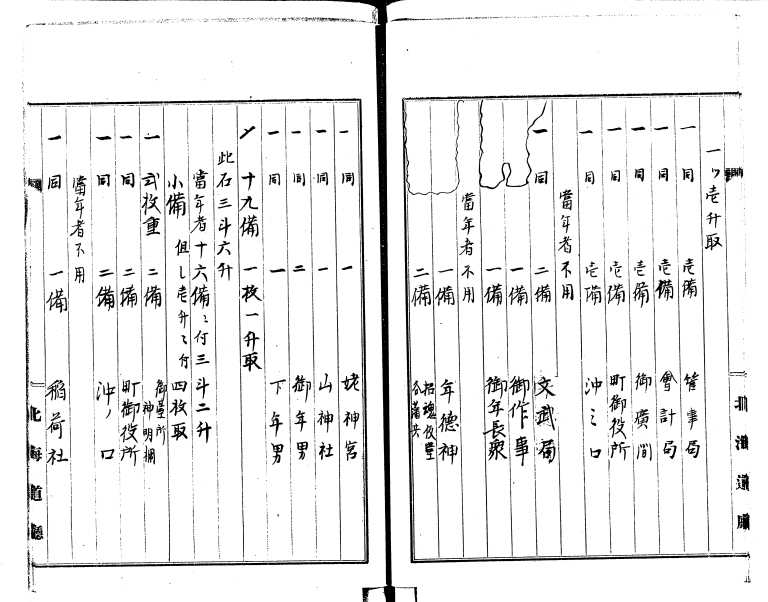 一ツ壱升取
一同 壱備 管事局
一同 壱備 會計局
一同 壱備 御廣間
一同 壱備 町御役所
一同 壱備 沖之口
當年者不用
一同 二備 文武局
一備 御作事
一備 御年長衆
當年者不用
一備 年德神
二備
北海道廳
一同 一 姥神宮
一同 一 山神社
一同 二 御年男
一同 一 下年男
〆十九備 一枚一升取
此石三斗六升
當年者十六備ニ付三斗二升
小備 但し壱升ニ付四枚取
一弐枚重 二備 御臺所 神明棚
一同 二備 町御役所
一同 二備 沖ノ口
當年者不用
一同 一備 稲荷社
北海道廳